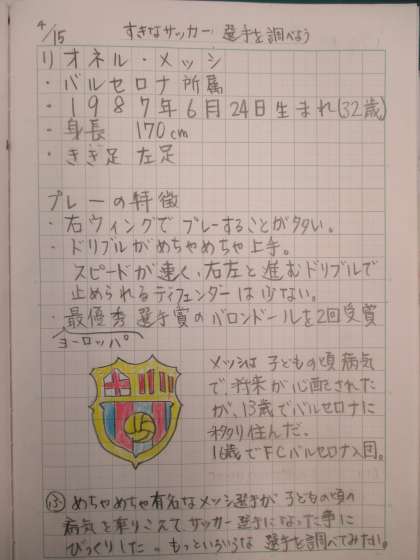 4/15 すきなサッカー選手を調べよう
リオネル・メッシ
・バルセロナ所属
・1987年6月24日生まれ(32歳)
・身長 170cm
・きき足 左足
プレーの特徴
・右ウィングでプレーすることが多い。
・ドリブルがめちゃめちゃ上手。
スピードが速く、右左と進むドリブルで
止められるディフェンダーは少ない。
・最優秀選手賞のバロンドールを2回受賞
ヨーロッパ
メッシは子どもの頃病気
で、将来が心配された
が、13歳でバルセロナに
移り住んだ。
16歳でFCバルセロナ入団。
ふ めちゃめちゃ有名なメッシ選手が子どもの頃の
病気を乗りこえてサッカー選手になった事に
びっくりした。もっといろいろな選手を調べてみたい。